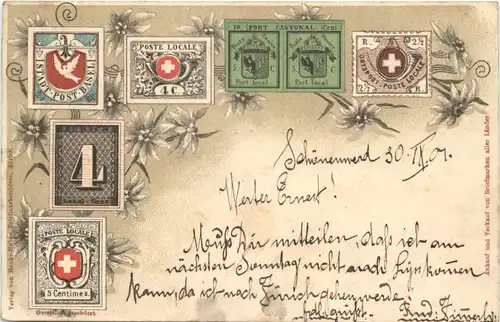 STADT-POST-BASEL
POSTE LOCALE
4 C
10 PORT CANTONAL Cent.
Port local Port local
R. 2½
ORTS-POST POSTE-LOCALE
2½ R
4
POSTE LOCALE
5 Centimes
Schönenwerd 30. IX. 01.
Werter Ernest!
Muß Dir mitteilen, daß ich am
nächsten Sonntag nicht nach kommen
kann, da ich nach Zürich gehen werde
Ankauf und Verkauf von Briefmarken aller Länder
Verlag von